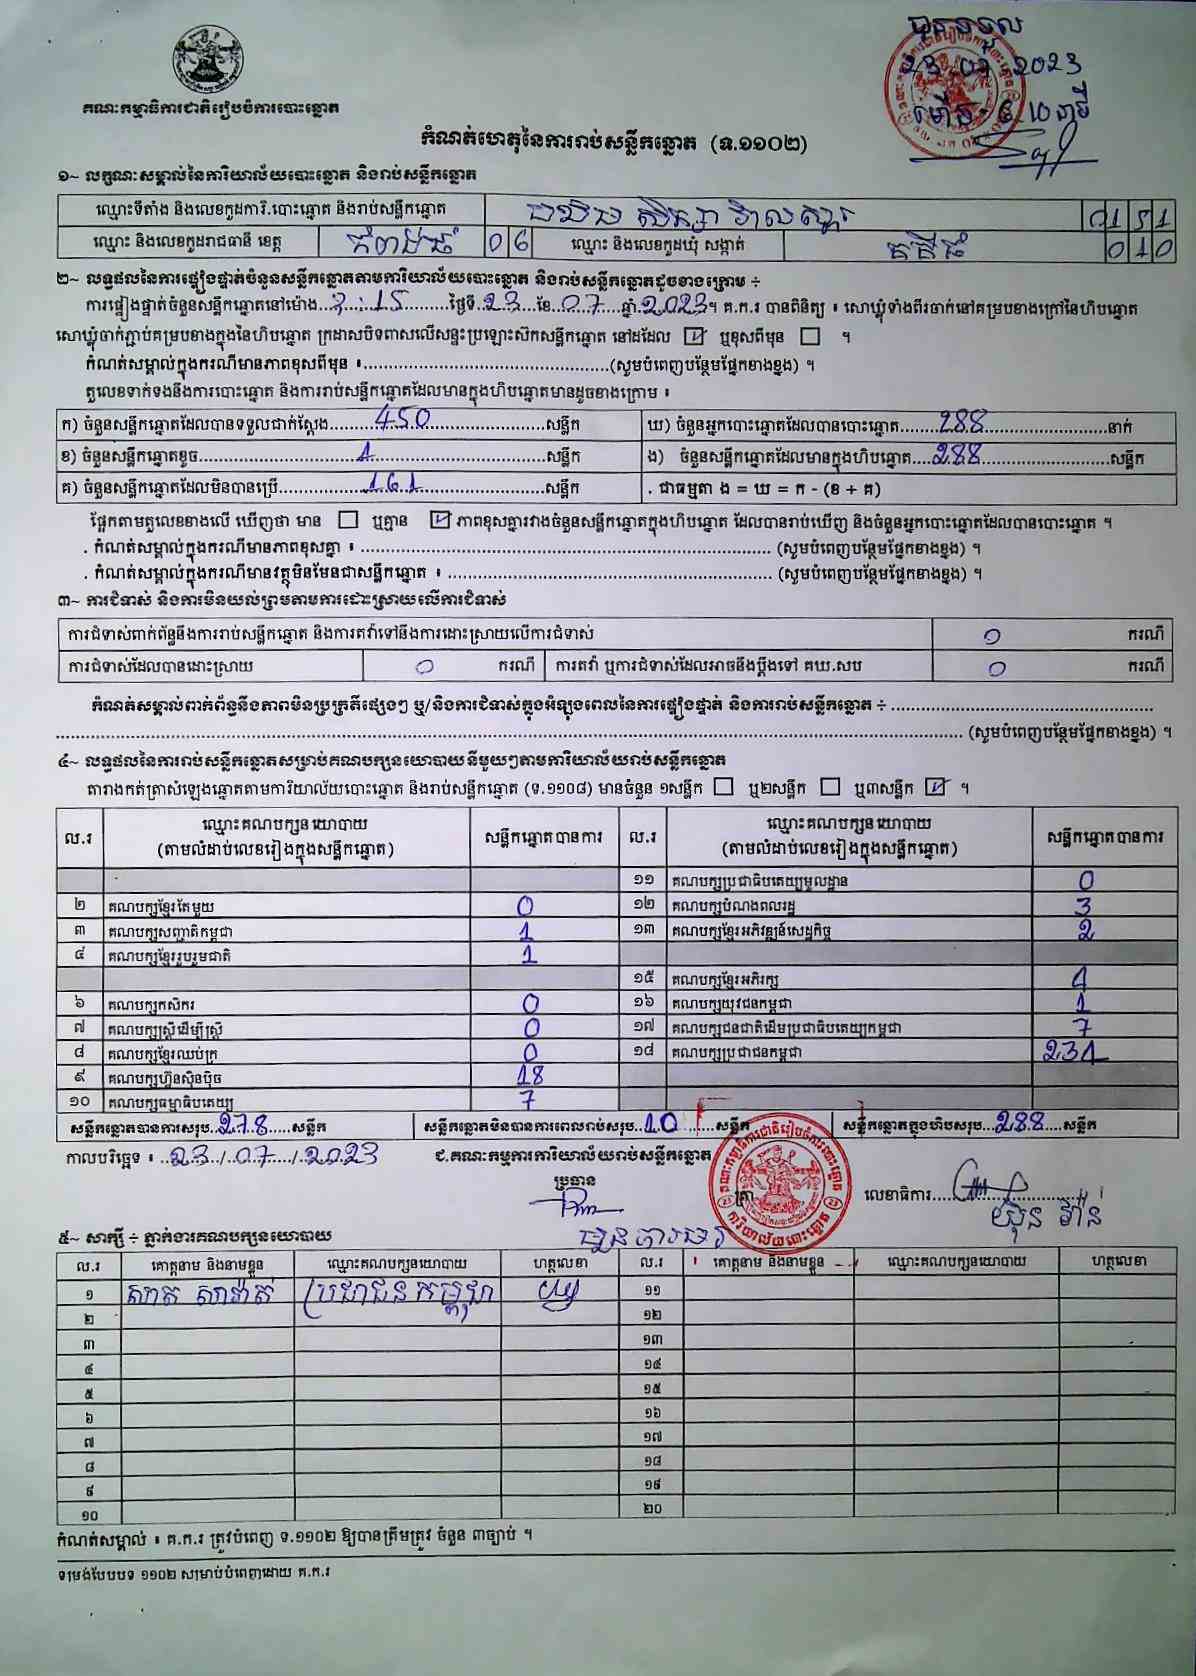 គណៈកម្មាធិការជាតិរៀបចំការបោះឆ្នោត
23 07 2023
កំណត់ហេតុនៃការរាប់សន្លឹកឆ្នោត (ទ.១១០២)
១~ លក្ខណៈសម្គាល់នៃការិយាល័យបោះឆ្នោត និងរាប់សន្លឹកឆ្នោត
ឈ្មោះទីតាំង និងលេខកូដការិ.បោះឆ្នោត និងរាប់សន្លឹកឆ្នោត 0151
ឈ្មោះ និងលេខកូដរាជធានី ខេត្ត កំពង់ធំ 06 ឈ្មោះ និងលេខកូដឃុំ សង្កាត់ គគីធំ 010
២~ លទ្ធផលនៃការផ្ទៀងផ្ទាត់ចំនួនសន្លឹកឆ្នោតតាមការិយាល័យបោះឆ្នោត និងរាប់សន្លឹកឆ្នោតដូចខាងក្រោម ÷
ការផ្ទៀងផ្ទាត់ចំនួនសន្លឹកឆ្នោតនៅម៉ោង 3:15 ថ្ងៃទី 23 ខែ 07 ឆ្នាំ 2023 ។ គ.ក.រ បានពិនិត្យ ៖ សោឃ្លុំទាំងពីរចាក់នៅគម្របខាងក្រៅនៃហិបឆ្នោត
សោឃ្លុំចាក់ភ្ជាប់គម្របខាងក្នុងនៃហិបឆ្នោត ក្រដាសបិទពាសលើសន្ទះប្រឡោះស៊កសន្លឹកឆ្នោត នៅដដែល ☑ ឬខុសពីមុន ☐ ។
កំណត់សម្គាល់ក្នុងករណីមានភាពខុសពីមុន ៖ (សូមបំពេញបន្ថែមផ្នែកខាងខ្នង) ។
តួលេខទាក់ទងនឹងការបោះឆ្នោត និងការរាប់សន្លឹកឆ្នោតដែលមានក្នុងហិបឆ្នោតមានដូចខាងក្រោម ៖
ក) ចំនួនសន្លឹកឆ្នោតដែលបានទទួលជាក់ស្តែង 450 សន្លឹក ឃ) ចំនួនអ្នកបោះឆ្នោតដែលបានបោះឆ្នោត 288 នាក់
ខ) ចំនួនសន្លឹកឆ្នោតខូច 1 សន្លឹក ង) ចំនួនសន្លឹកឆ្នោតដែលមានក្នុងហិបឆ្នោត 288 សន្លឹក
គ) ចំនួនសន្លឹកឆ្នោតដែលមិនបានប្រើ 161 សន្លឹក . ជាធម្មតា ង = ឃ = ក - (ខ + គ)
ផ្អែកតាមតួលេខខាងលើ ឃើញថា មាន ☐ ឬគ្មាន ☑ ភាពខុសគ្នារវាងចំនួនសន្លឹកឆ្នោតក្នុងហិបឆ្នោត ដែលបានរាប់ឃើញ និងចំនួនអ្នកបោះឆ្នោតដែលបានបោះឆ្នោត ។
. កំណត់សម្គាល់ក្នុងករណីមានភាពខុសគ្នា ៖ (សូមបំពេញបន្ថែមផ្នែកខាងខ្នង) ។
. កំណត់សម្គាល់ក្នុងករណីមានវត្ថុមិនមែនជាសន្លឹកឆ្នោត ៖ (សូមបំពេញបន្ថែមផ្នែកខាងខ្នង) ។
៣~ ការជំទាស់ និងការមិនយល់ព្រមតាមការដោះស្រាយលើការជំទាស់
ការជំទាស់ពាក់ព័ន្ធនឹងការរាប់សន្លឹកឆ្នោត និងការតវ៉ាទៅនឹងការដោះស្រាយលើការជំទាស់ 0 ករណី
ការជំទាស់ដែលបានដោះស្រាយ 0 ករណី ការតវ៉ា ឬការជំទាស់ដែលអាចនឹងប្តឹងទៅ គឃ.សប 0 ករណី
កំណត់សម្គាល់ពាក់ព័ន្ធនឹងភាពមិនប្រក្រតីផ្សេងៗ ឬ/និងការជំទាស់ក្នុងអំឡុងពេលនៃការផ្ទៀងផ្ទាត់ និងការរាប់សន្លឹកឆ្នោត ÷
(សូមបំពេញបន្ថែមផ្នែកខាងខ្នង) ។
៤~ លទ្ធផលនៃការរាប់សន្លឹកឆ្នោតសម្រាប់គណបក្សនយោបាយនីមួយៗតាមការិយាល័យរាប់សន្លឹកឆ្នោត
តារាងកត់ត្រាសំឡេងឆ្នោតតាមការិយាល័យបោះឆ្នោត និងរាប់សន្លឹកឆ្នោត (ទ.១១០៨) មានចំនួន ១សន្លឹក ☐ ឬ២សន្លឹក ☐ ឬ៣សន្លឹក ☑ ។
ល.រ ឈ្មោះគណបក្សនយោបាយ (តាមលំដាប់លេខរៀងក្នុងសន្លឹកឆ្នោត) សន្លឹកឆ្នោតបានការ ល.រ ឈ្មោះគណបក្សនយោបាយ (តាមលំដាប់លេខរៀងក្នុងសន្លឹកឆ្នោត) សន្លឹកឆ្នោតបានការ
១១ គណបក្សប្រជាធិបតេយ្យមូលដ្ឋាន 0
២ គណបក្សខ្មែរតែមួយ 0 ១២ គណបក្សបំណងពលរដ្ឋ 3
៣ គណបក្សសញ្ជាតិកម្ពុជា 1 ១៣ គណបក្សខ្មែរអភិវឌ្ឍន៍សេដ្ឋកិច្ច 2
៤ គណបក្សខ្មែររួបរួមជាតិ 1
១៥ គណបក្សខ្មែរអភិរក្ស 4
៦ គណបក្សកសិករ 0 ១៦ គណបក្សយុវជនកម្ពុជា 1
៧ គណបក្សស្ត្រីដើម្បីស្ត្រី 0 ១៧ គណបក្សជនជាតិដើមប្រជាធិបតេយ្យកម្ពុជា 7
៨ គណបក្សខ្មែរឈប់ក្រ 0 ១៨ គណបក្សប្រជាជនកម្ពុជា 234
៩ គណបក្សហ្វ៊ុនស៊ិនប៉ិច 18
១០ គណបក្សធម្មាធិបតេយ្យ 7
សន្លឹកឆ្នោតបានការសរុប 278 សន្លឹក សន្លឹកឆ្នោតមិនបានការពេលរាប់សរុប 10 សន្លឹក សន្លឹកឆ្នោតក្នុងហិបសរុប 288 សន្លឹក
កាលបរិច្ឆេទ ៖ 23/07/2023 ជ.គណៈកម្មការការិយាល័យរាប់សន្លឹកឆ្នោត
ប្រធាន ត្រា លេខាធិការ
៥~ សាក្សី ÷ ភ្នាក់ងារគណបក្សនយោបាយ
ល.រ គោត្តនាម និងនាមខ្លួន ឈ្មោះគណបក្សនយោបាយ ហត្ថលេខា ល.រ គោត្តនាម និងនាមខ្លួន ឈ្មោះគណបក្សនយោបាយ ហត្ថលេខា
១ ប្រជាជនកម្ពុជា ១១
២ ១២
៣ ១៣
៤ ១៤
៥ ១៥
៦ ១៦
៧ ១៧
៨ ១៨
៩ ១៩
១០ ២០
កំណត់សម្គាល់ ៖ គ.ក.រ ត្រូវបំពេញ ទ.១១០២ ឱ្យបានត្រឹមត្រូវ ចំនួន ៣ច្បាប់ ។
ទម្រង់បែបបទ ១១០២ សម្រាប់បំពេញដោយ គ.ក.រ